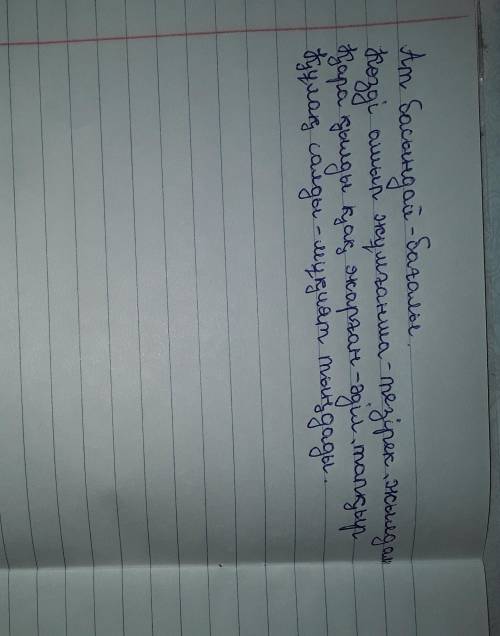 Ат басындай - бағалы.
Көзді ашып жұмғанша - тезірек, жылдам
Қара қылды қақ жарған - әділ, тапқыр
Құлақ салды - мұқият тыңдады.